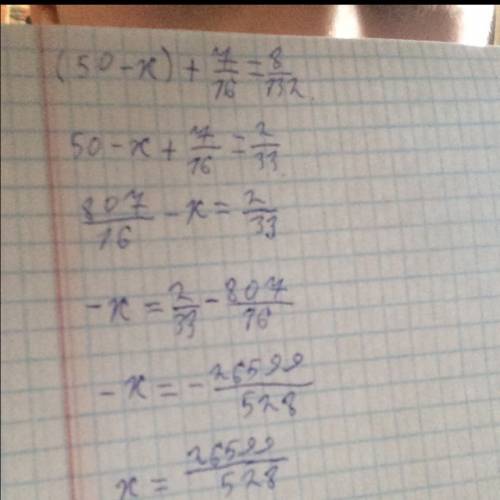 (50-x)+7/16=8/132
50-x+7/16=2/33
807/16-x=2/33
-x=2/33-807/16
-x=-26599/528
x=26599/528